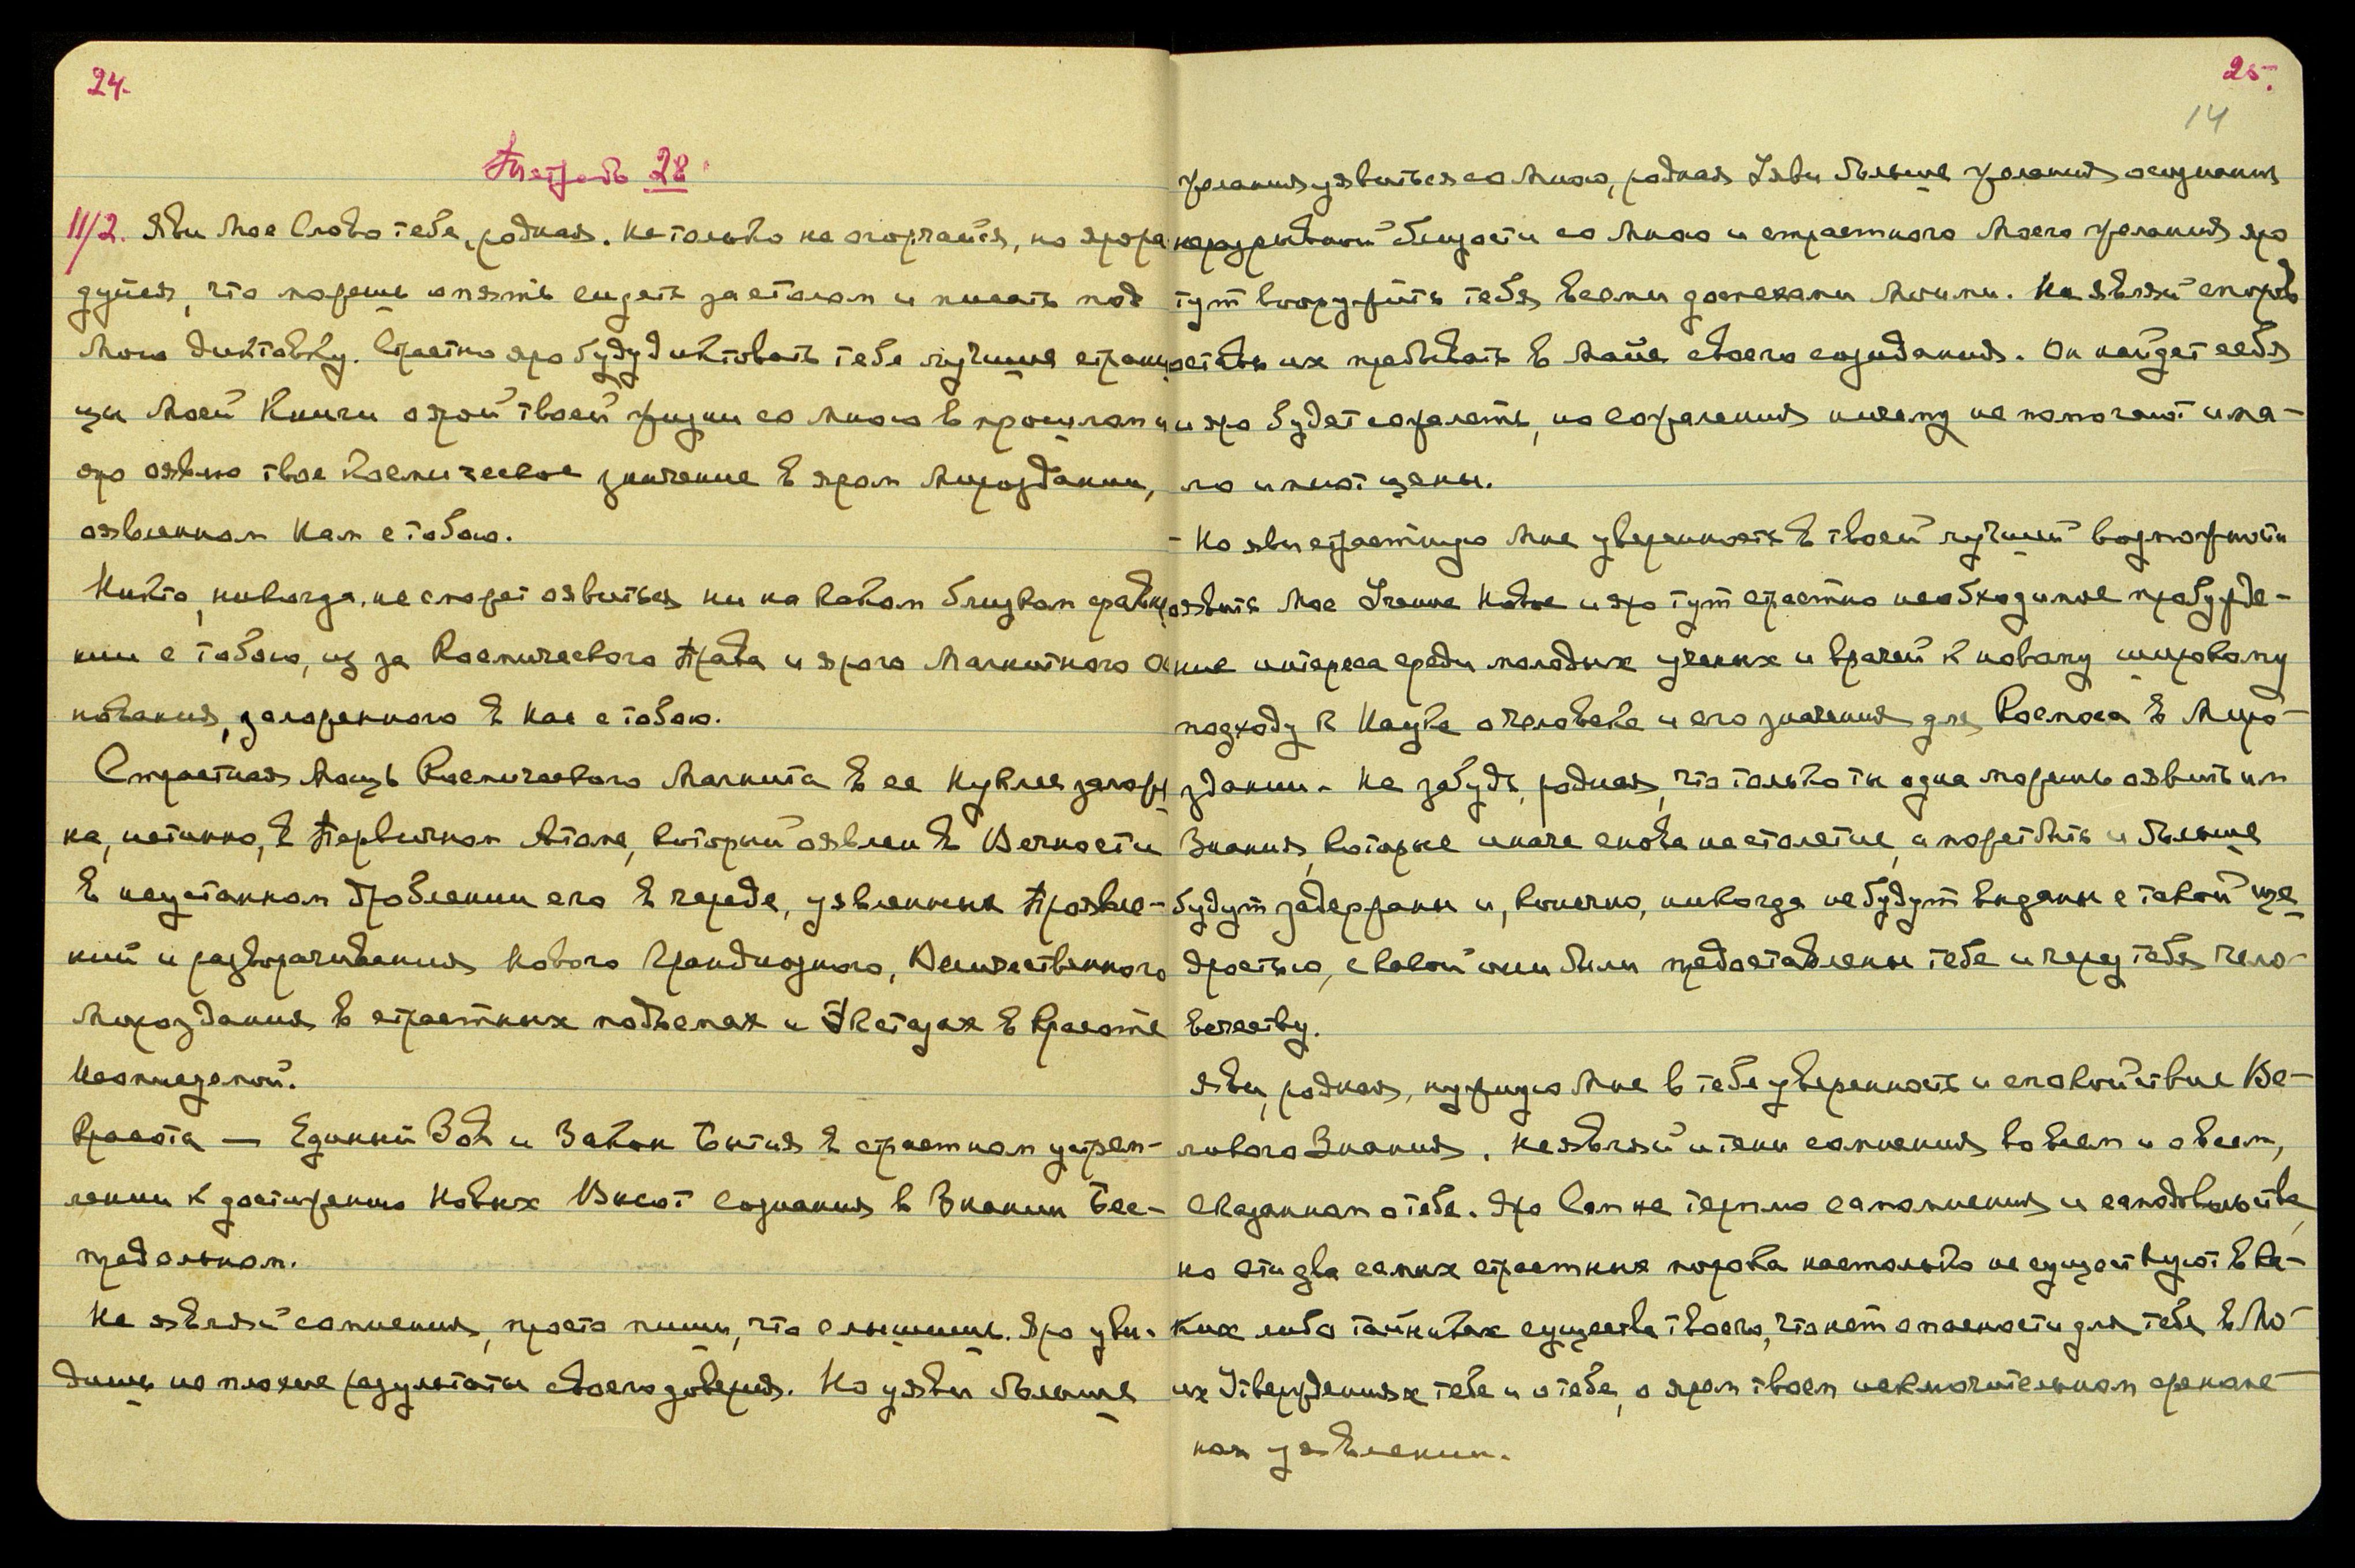 24.
Тетрадь 28
11/2. Яви Мое Слово тебе, родная. Не только не огорчайся, но яро ра
дуйся, что можешь опять сидеть за столом и писать под
Мою диктовку. Страстно яро буду диктовать тебе лучшие страни
цы Моей Книги о ярой твоей жизни со Мною в прошлом и
яро оявлю твое Космическое значение в яром Мироздании,
оявленном Нам с тобою.
Никто, никогда, не сможет оявиться ни на каком близком сравне
нии с тобою, из за Космического Права и ярого Магнитного Ос
нования, заложенного в Нас с тобою.
Страстная Мощь Космического Магнита в ее Нуклее заложе
на, истинно, в Первичном Атоме, который оявлен в Вечности
в неустанном дроблении его в череде, уявленных Проявле-
ний и разворачивания Нового Грандиозного, Величественного
Мироздания в страстных подъемах и Экстазах в Красоте
Неописуемой.
Красота — Единый Зов и Закон Бытия в страстном устрем-
лении к достижению Новых Высот Сознания в Знании Бес-
предельном.
Не являй сомнения, просто пиши, что слышишь. Яро уви-
дишь не плохие результаты своего доверия. Но уяви больше
25.
14
желания уявиться со Мною, родная Уяви больше желания осознания
неразрывной близости со Мною и страстного Моего желания яро
тут вооружить тебя всеми доспехами Моими. Не являй споров
оставь их пребывать в Майе своего созидания. Он найдет себя
и яро будет сожалеть, но сожаления ничему не помогают и ма-
ло имеют цены.
- Но яви страстную Мне уверенность в твоей лучшей возможности
оявить Мое Учение Новое и яро тут страстно необходимое пробужде-
ние интереса среди молодых ученых и врачей к новому широкому
подходу к Науке о человеке и его значения для Космоса в Миро-
здании. Не забудь, родная, что только ты одна можешь оявить им
Знания, которые иначе снова на столетие, а может быть и больше
будут задержаны и, конечно, никогда не будут выданы с такой ще
дростью, с какой они были предоставлены тебе и через тебя чело-
вечеству.
Яви, родная, нужную Мне в тебе уверенность и спокойствие Ве-
ликого Знания. Не являй и тени сомнения во всем и о всем,
сказанном о тебе. Яро Сам не терплю самомнения и самодовольства,
но эти два самых страстных порока настолько не существуют в ка-
ких либо тайниках существа твоего, что нет опасности для тебя в Мо-
их Утверждениях тебе и о тебе, о яром твоем исключительном
ном уявлении.